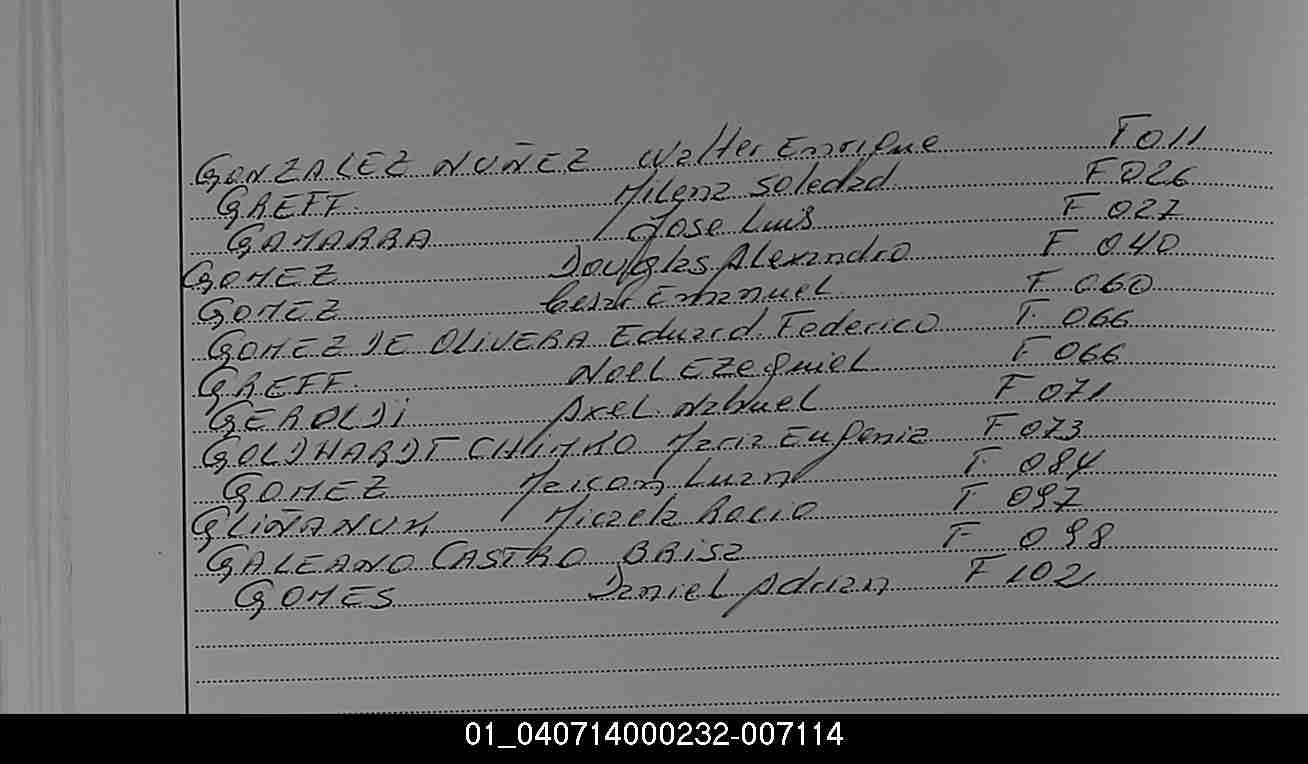 GONZALEZ NUÑEZ Walter Enrique F 011
GREFF Milena Soledad F 026
GAMARRA Jose Luis F 027
GOMEZ Douglas Alexandro F 040
GOMEZ Cesar Emanuel F 060
GOMEZ DE OLIVERA Eduard. Federico F 066
GREFF Noel Ezequiel F 066
GEROLDI Axel Nahuel F 071
GOLDHARDT Maria Eugenia F 073
GOMEZ Maicom Luan F 084
Micaela Rocio F 097
GALEANO CASTRO BRISA F 098
GOMES Daniel Adrian F 102
01_040714000232-007114